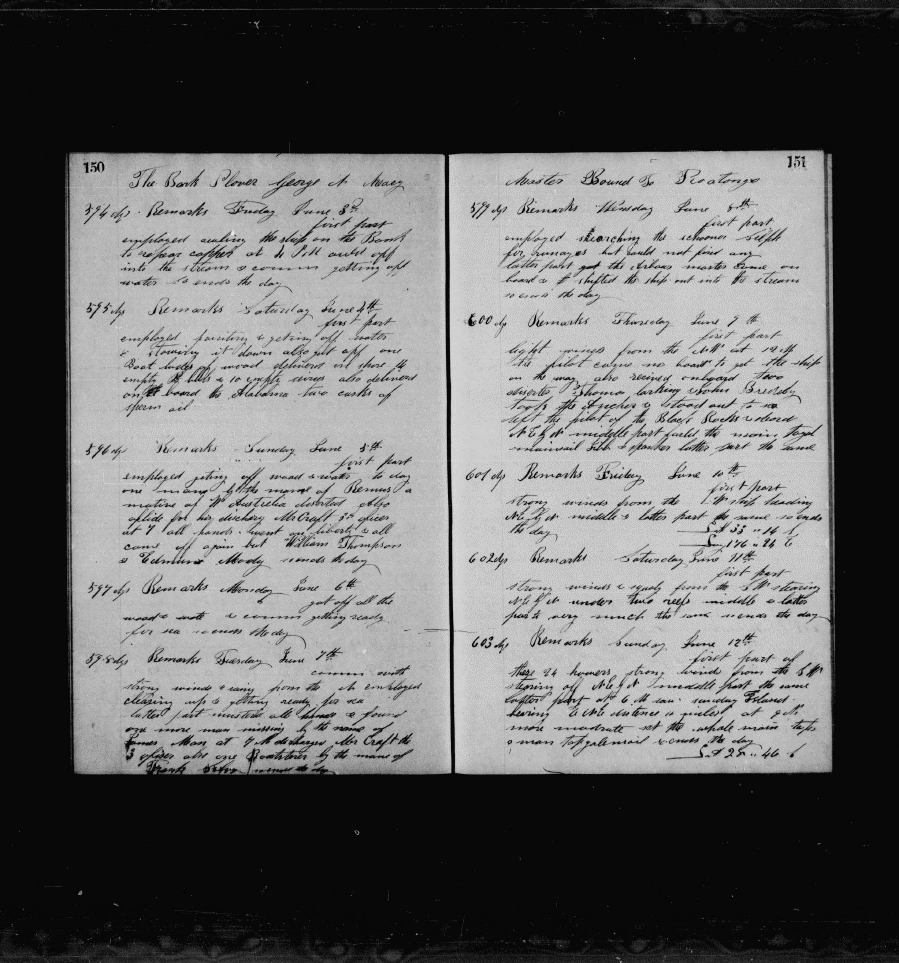 150
The Bark Plover George N Macy
594 dys Remarks Friday June 3rd
first part
employed the ship on the Bank
to repear copper at 4 P.M. off
into the stream & comm getting off
water So ends the day
595 dys Remarks Saturday June 4th
first part
employed painting & geting off water
& stowing it down also got off one
Boat lode of wood delivered on shore 14
empty & 10 empty also delivered
on board the Alabama two casks of
sperm oil
596 dys Remarks Sunday June 5th
first part
employed geting off wood & water to day
one man by the name of Remus a
native of W Australia deserted also
for his dischery Mr Craft 3rd oficer
at 7 all hands went on liberty & all
came off again but William Thompson
& Edmund Mody so ends the day
597 dys Remarks Monday June 6th
got off all the
wood & water & comm getting ready
for sea so ends the day
598 dys Remarks Tuesday June 7th
comm with
strong winds & rainy from the N employed
clearing up & getting ready for sea
latter part mustered all hands & found
one more man missing by the name of
James Man at 9 M discharged Mr Craft the
3 oficer also one Boatsterer by the name of
Frank so ends the day
151
Master Bound To Roatonga
599 dys Remarks Wensday June 8th
first part
employed searching the schooner Silph
for runaways but could not find any
latter part got the master came on
board & shifted the ship out into the stream
so ends the day
600 dys Remarks Thursday June 9th
first part
light winds from the NW at 12 M
the pilot came on board to get the ship
on the way also received onboard two
deserters Thomas Larking & John
took the Ancher & stood out to sea
left the pilot of the Black Rocks & steard
N E by N middle part furld the main
latter part the same
601 dys Remarks Friday June 10th
first part
strong winds from the W ship heading
N E by N middle & latter part the same so ends
the day
Lat 33 " 16 S
Lon 176 " 26 E
602 dys Remarks Saturday June 11th
first part
strong winds & from the S W stearing
N E by N under two reefs middle & latter
parts very much the same so ends the day
603 dys Remarks Sunday June 12th
first part of
these 24 howers strong wind from the S W
stearing of N E by N middle part the same
latter part at 6 M saw Sunday Island
bearing E N E distance miles at 9 M
more moderate set the whole main tops
& main topgalensail so ends the day
Lat 28 " 46 S